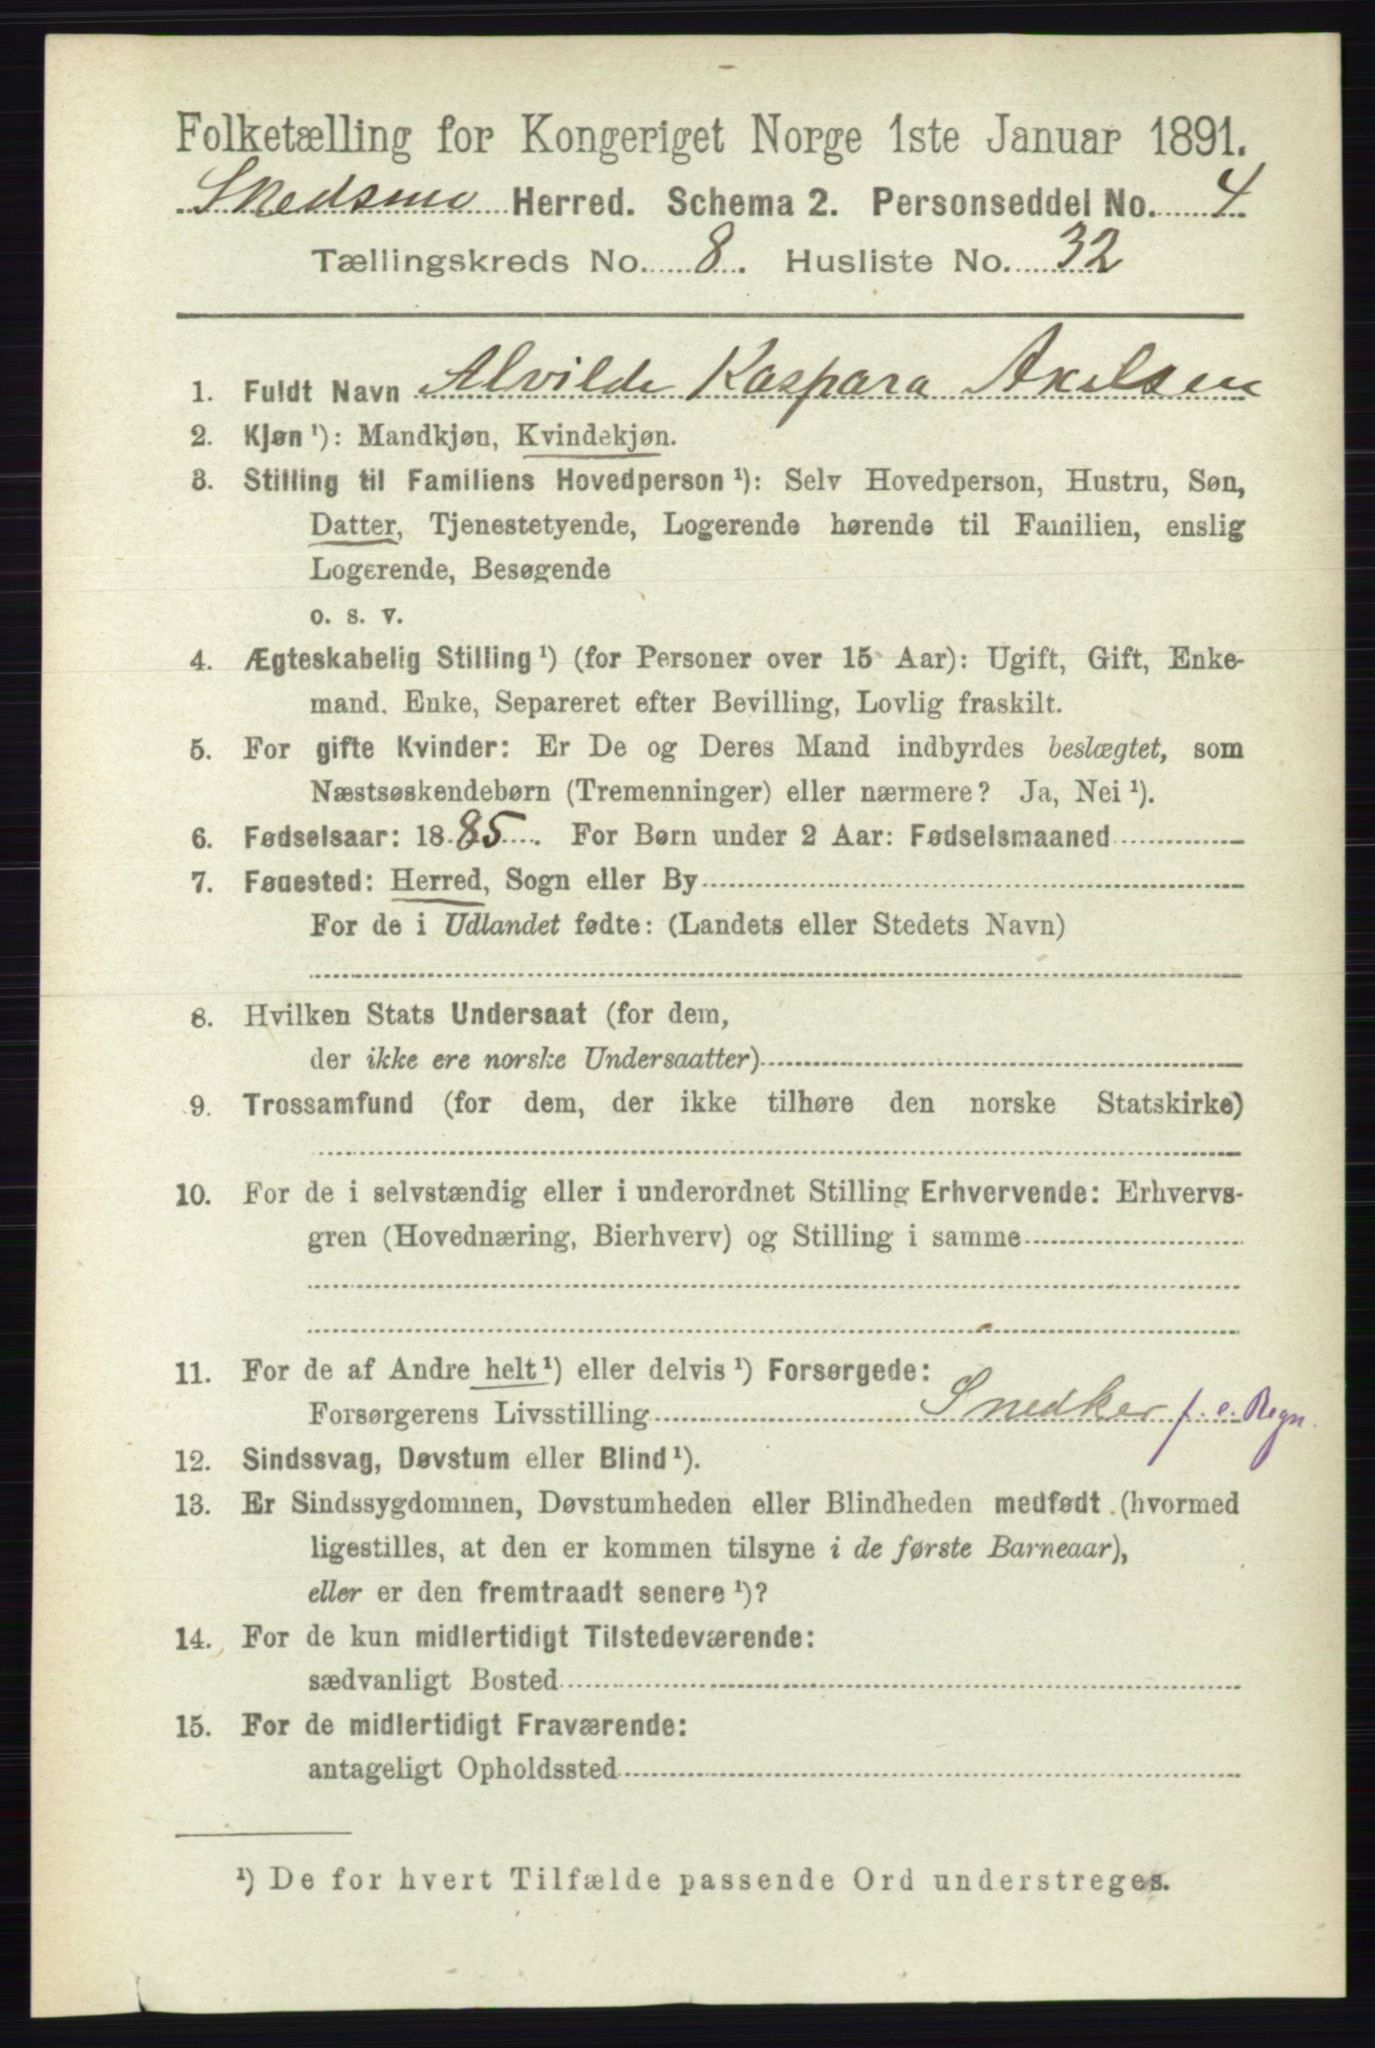 Folketælling for Kongeriget Norge 1ste Januar 1891.
Skedsmo Herred. Schema 2. Personseddel No. 4
Tællingskreds No. 8. Husliste No. 32
1. Fuldt Navn Alvilde Kaspara Axelsen
2. Kjøn ¹): Mandkjøn, Kvindekjøn.
3. Stilling til Familiens Hovedperson ¹): Selv Hovedperson, Hustru, Søn,
Datter, Tjenestetyende, Logerende hørende til Familien, enslig
Logerende, Besøgende
o. s. v.
4. Ægteskabelig Stilling ¹) (for Personer over 15 Aar): Ugift, Gift, Enke-
mand, Enke, Separeret efter Bevilling, Lovlig fraskilt.
5. For gifte Kvinder: Er De og Deres Mand indbyrdes beslægtet, som
Næstsøskendebørn (Tremenninger) eller nærmere? Ja, Nei ¹).
6. Fødselsaar: 1885. For Børn under 2 Aar: Fødselsmaaned
7. Fødested: Herred, Sogn eller By
For de i Udlandet fødte: (Landets eller Stedets Navn)
8. Hvilken Stats Undersaat (for dem,
der ikke ere norske Undersaatter)
9. Trossamfund (for dem, der ikke tilhøre den norske Statskirke)
10. For de i selvstændig eller i underordnet Stilling Erhvervende: Erhvervs-
gren (Hovednæring, Bierhverv) og Stilling i samme
11. For de af Andre helt ¹) eller delvis ¹) Forsørgede:
Forsørgerens Livsstilling Snedker f. e. Regn.
12. Sindssvag, Døvstum eller Blind ¹).
13. Er Sindssygdommen, Døvstumheden eller Blindheden medfødt (hvormed
ligestilles, at den er kommen tilsyne i de første Barneaar),
eller er den fremtraadt senere ¹)?
14. For de kun midlertidigt Tilstedeværende:
sædvanligt Bosted
15. For de midlertidigt Fraværende:
antageligt Opholdssted
¹) De for hvert Tilfælde passende Ord understreges.